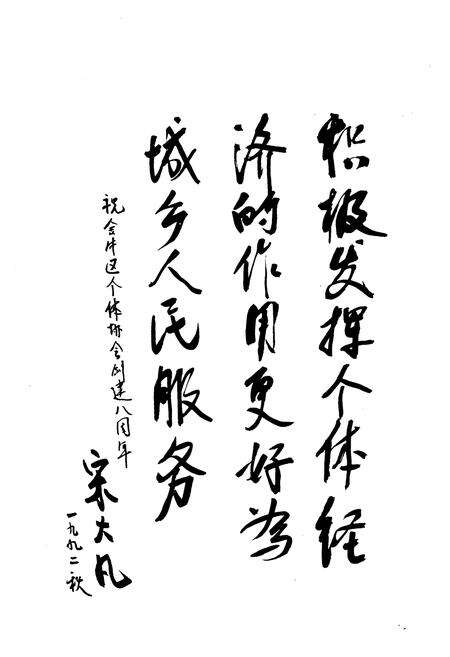 积极发挥个体经
济的作用更好为
城乡人民服务
祝金牛区个体协会创建八周年
宋大凡
一九九二.秋